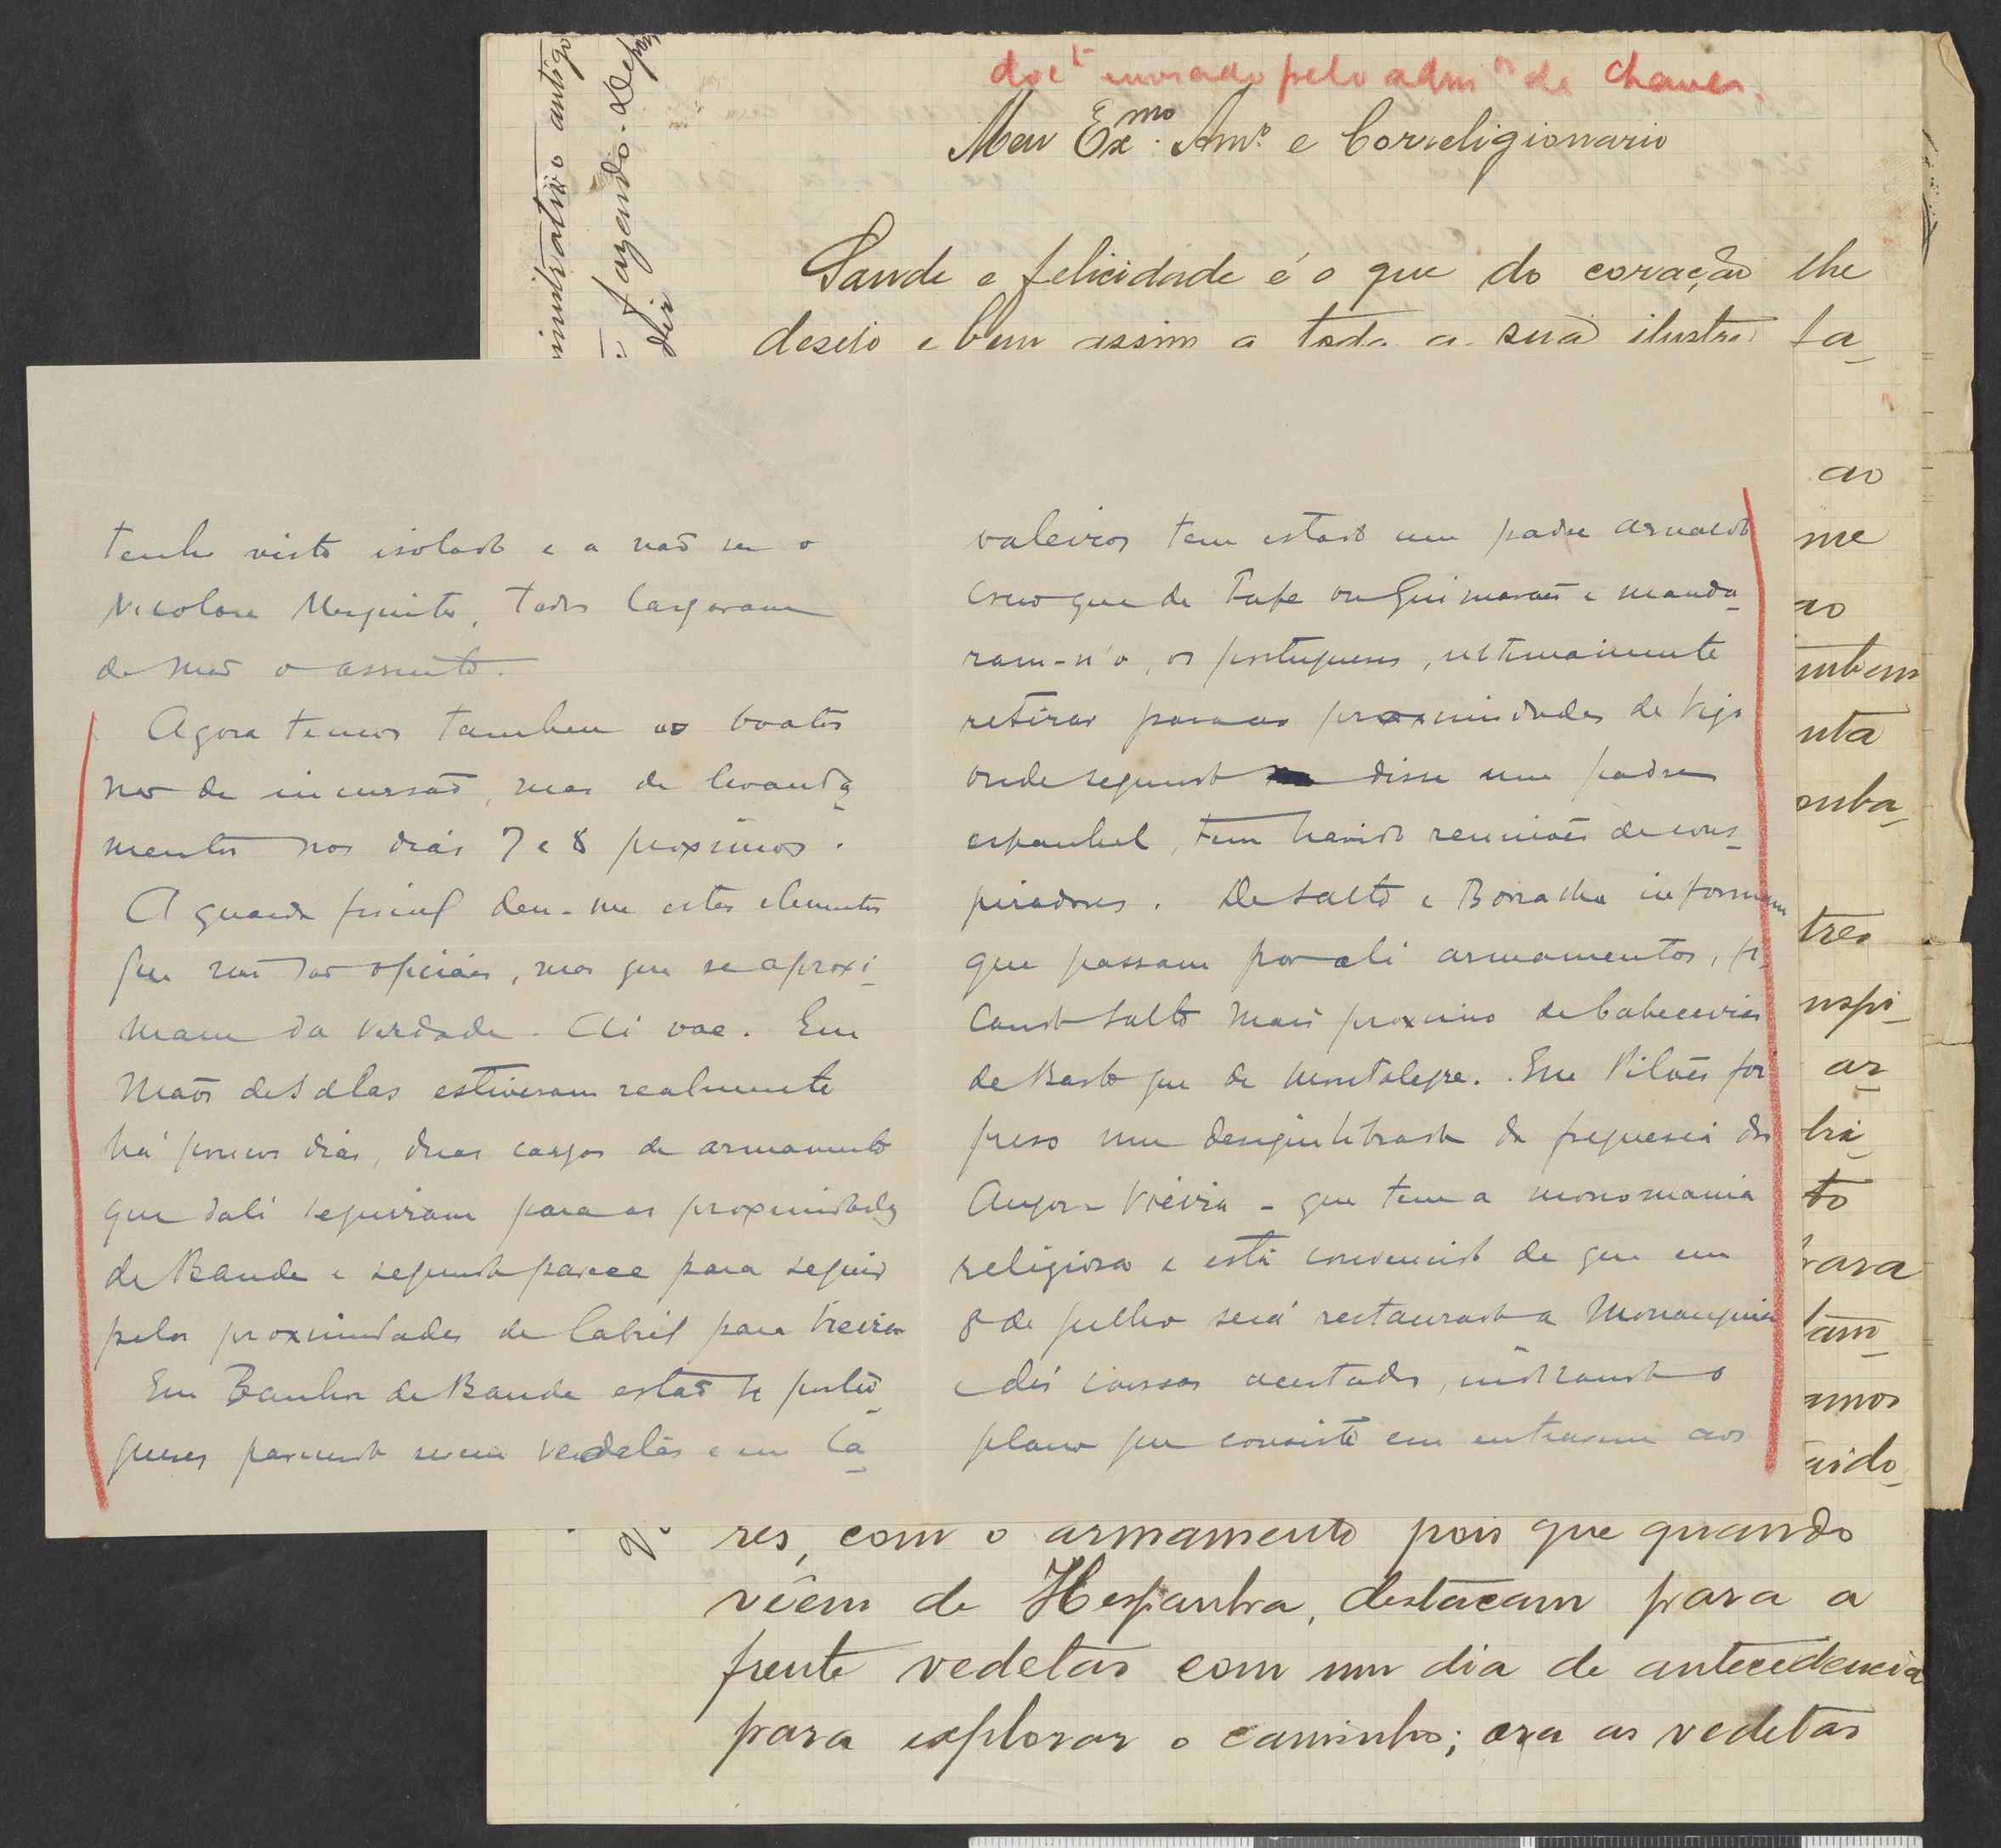 doct enviado pelo admor de Chaves.
Meu Exmo. Amo. e Correligionario
Saude e felicidade é o que do coração lhe
desejo e bem assim a toda a sua ilustre fa-
ministrativo o antigo
fazendo-
dir
tenho visto isolado e a não ser o
Nicolau Mesquita, todos largaram
de mão o assunto.
Agora temos tambem os boatos
não de incursão, mas de levanta-
mentos nos dias 7 e 8 proximos.
A guarda fiscal deu-me estes elementos
que não são oficiaes, mas que se aproxi-
mam da verdade. Ai vae. Em
Maos de Salas estiveram realmente
há poucos dias, duas cargas de armamento
que dali seguiram para as proximidades
de Bande e segundo parece para seguir
pelas proximidades de Cabril para Vieira
Em Banhos de Bande estão 12 portu-
gueses parecendo serem vedetas e em Ca-
valeiros tem estado um padre Arnaldo
creio que de Fafe ou Guimarães e manda-
ram-n'o, os portugueses, ultimamente
retirar para as proximidades de Vigo
onde segundo disse um padre
espanhol, tem havido reuniões de cons-
piradores. De Salto e Borralha informam
que passam por ali armamentos, fi-
cando Salto mais proximo de Cabeceiras
de Basto que de Montalegre. Em Pilões foi
preso um desiquilibrado da freguesia dos
Anjos - Vieira - que tem a monomania
religiosa e está convencido de que em
8 de julho será restaurada a Monarquia
e diz coisas acertadas, indicando o
plano que consiste em entrarem aos
ao
me
ao
mbem
nta
omba-
tres
nspi-
ar
to
rara
tam-
amos
uido-
res, com o armamento pois que quando
vêem de Hespanha, destacam para a
frente vedetas com um dia de antecedencia
para explorar o caminho; ora as vedetas